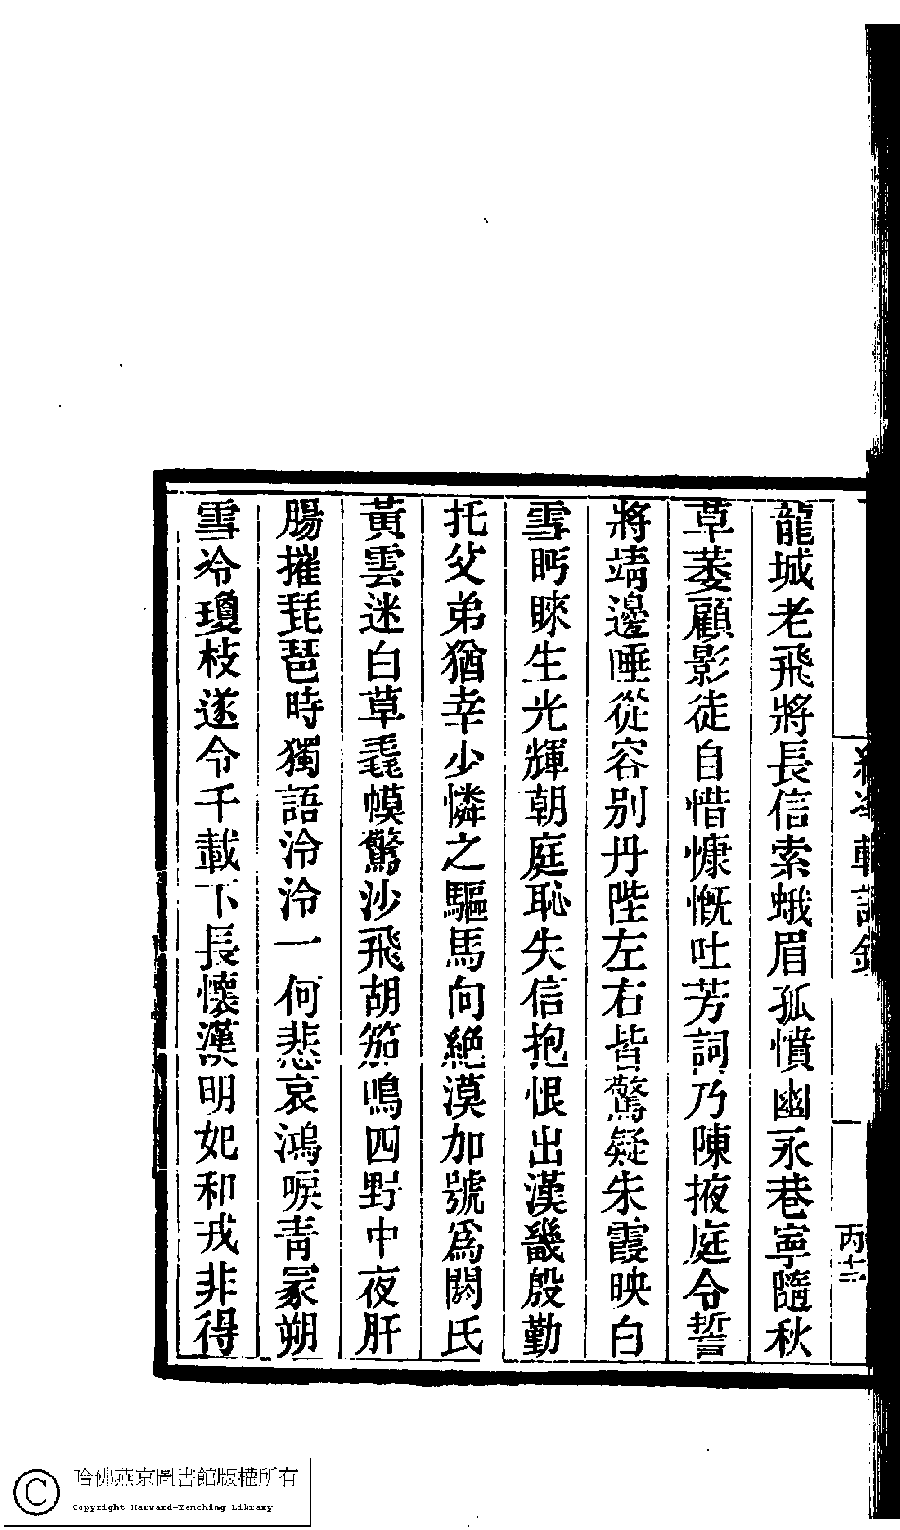 龍城老飛將長信索蛾眉孤憤幽永巷寧隨秋
草萎顧影徒自惜慷慨吐芳詞乃陳掖庭令誓
將靖邊陲從容別丹陛左右皆驚疑朱霞映白
雪眄睞生光輝朝庭恥失信抱恨出漢畿殷勤
托父弟猶幸少憐之驅馬向絕漠加號為閼氏
黃雲迷白草毳幙驚沙飛胡笳鳴四野中夜肝
腸摧琵琶時獨語泠泠一何悲哀鴻唳青冢朔
雪冷瓊枝遂令千載下長懷漢明妃和戎非得
丙十二
哈佛燕京圖書館版權所有
Copyright Harvard-Yenching Library